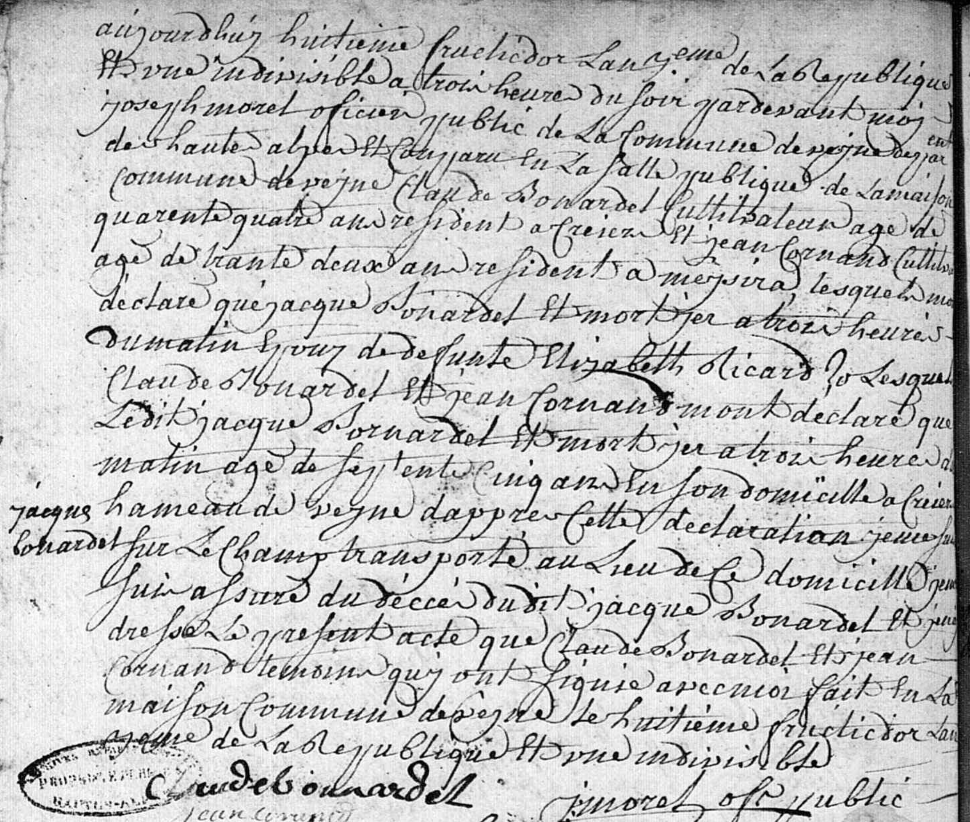 aujourdhuy huitieme fructidor Lan 2eme de La Republique
Et vne indivisible a trois heure du soir pardevant moy
joseph morel oficier public de La Commune de veyne depar
ent
de haute alpe Et Comparu En La salle publique de La maison
Commune de veyne Claude Bonardel Cultivateur age de
quarente quatre an resident a Creiere Et jean Cornand Cultiv
age de trante deux an resident a
declare que jacque Bonardel Et mort jer a trois heures
du matin Epoux de defunte Elizabeth Ricard Lesquel
Claude Bonardel Et jean Cornand mont declaré que
Ledit jacque Bonardel Et mort jer a trois heure d
matin age de septente Cinq ans En son domicille a Creiere
hameau de veyne dappres Cette declaration jeme sui
jacque
bonardel
sur Le Champ transporté au Lieu de Ce domicille jeme
suis assuré du décce dudit jacque Bonardel Et jeme
dresse Le present acte que Claude Bonardel Et jean
Cornand temoins quj ont signie avec moi fait En La
maison Commune de veyne le huitième fructidor Lan
2eme de La Republique Et vne indivisible
Claude bonnardel
jmorel ofc public
jean